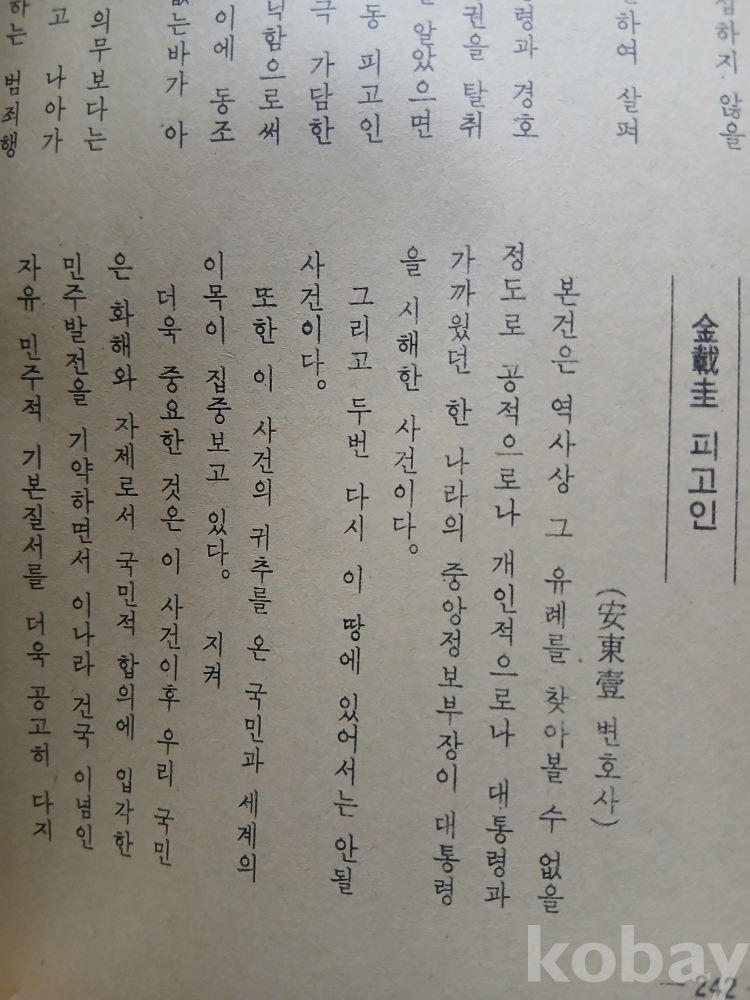 심하지 않을
하여 살펴
령과 경호
권을 탈취
알았으면
동 피고인
극 가담한
닉함으로써
이에 동조
없는바가 아
의무보다는
고 나아가
하는 범죄행
金載圭 피고인
(安東壹 변호사)
본건은 역사상 그 유례를 찾아볼 수 없을
정도로 공적으로나 개인적으로나 대통령과
가까웠던 한 나라의 중앙정보부장이 대통령
을 시해한 사건이다。
그리고 두번 다시 이 땅에 있어서는 안될
사건이다。
또한 이 사건의 귀추를 온 국민과 세계의
이목이 집중보고 있다。 지켜
더욱 중요한 것은 이 사건이후 우리 국민
은 화해와 자제로서 국민적 합의에 입각한
민주발전을 기약하면서 이나라 건국 이념인
자유 민주적 기본질서를 더욱 공고히 다지
— 242
kobay